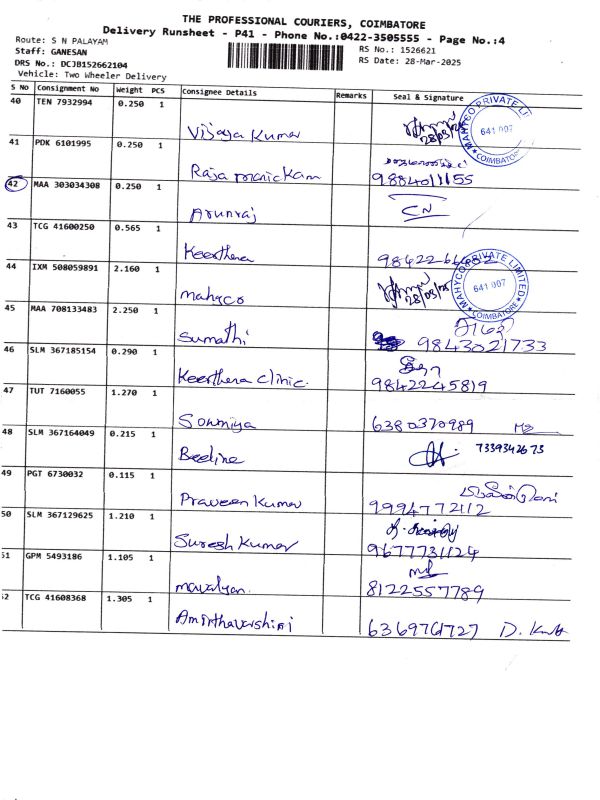 THE PROFESSIONAL COURIERS, COIMBATORE
Delivery Runsheet - P41 - Phone No.:0422-3505555 - Page No.:4
Route: S N PALAYAM
RS No.: 1526621
Staff: GANESAN
RS Date: 28-Mar-2025
DRS No.: DCJB152662104
Vehicle: Two Wheeler Delivery
S No Consignment No Weight PCS Consignee Details Remarks Seal & Signature
40 TEN 7932994 0.250 1 Vijaya Kumar 28/03/25
MAHYCO PRIVATE LI
641 007
COIMBATORE
41 PDK 6101995 0.250 1 Raja manickam 9884011155
42 MAA 303034308 0.250 1 Arunraj CN
43 TCG 41600250 0.565 1 Keerthena
44 IXM 508059891 2.160 1 mahyco 28/03/25
MAHYCO PRIVATE LIMITED
641 007
COIMBATORE
45 MAA 708133483 2.250 1 Sumathi 9843021733
46 SLM 367185154 0.290 1 Keerthena clinic. 9842245819
47 TUT 7160055 1.270 1 Sowmiya 6380370989
48 SLM 367164049 0.215 1 Beeline 7339342673
49 PGT 6730032 0.115 1 Praveen Kumar 9994772112
50 SLM 367129625 1.210 1 Suresh Kumar 9677731124
51 GPM 5493186 1.105 1 mayalyan. 8122557789
52 TCG 41608368 1.305 1 Amirthavarshini 6369761727